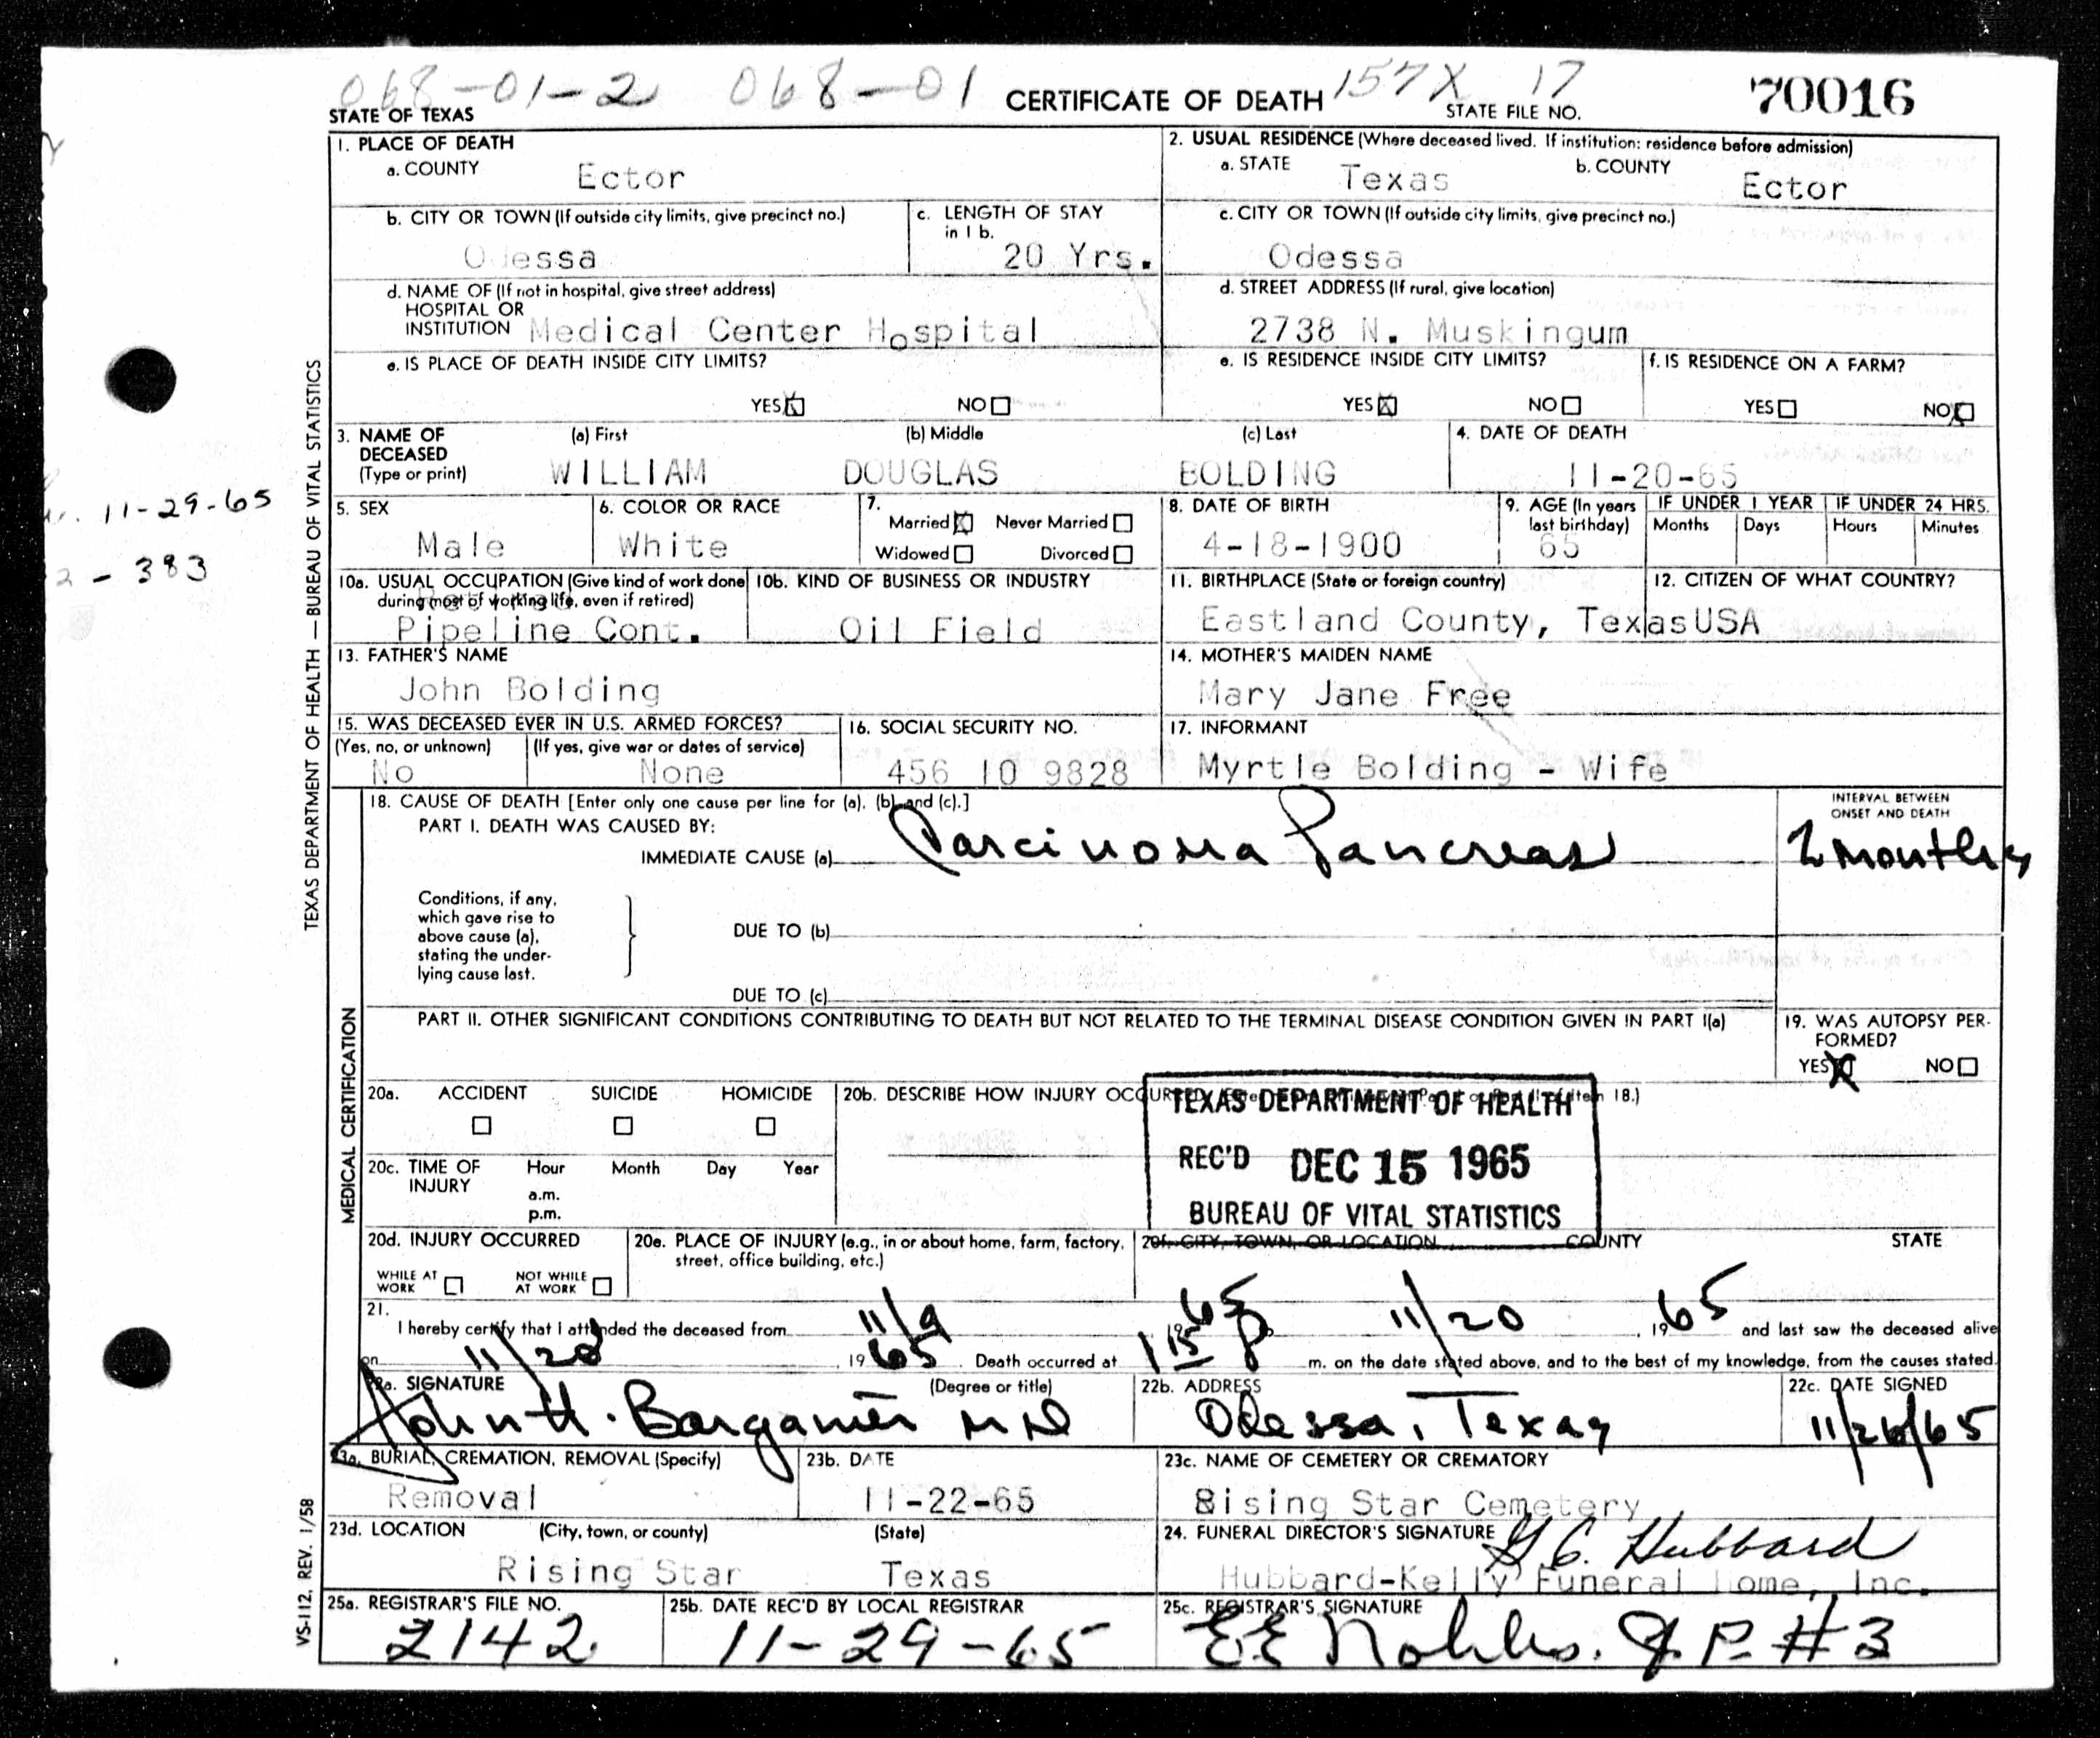 068-01-2 068-01 CERTIFICATE OF DEATH 157X 17 70016
STATE OF TEXAS STATE FILE NO.
1. PLACE OF DEATH
a. COUNTY Ector
2. USUAL RESIDENCE (Where deceased lived. If institution: residence before admission)
a. STATE Texas b. COUNTY Ector
b. CITY OR TOWN (If outside city limits, give precinct no.) Odessa
c. LENGTH OF STAY in 1 b. 20 Yrs.
c. CITY OR TOWN (If outside city limits, give precinct no.) Odessa
d. NAME OF (If not in hospital, give street address)
HOSPITAL OR
INSTITUTION Medical Center Hospital
d. STREET ADDRESS (If rural, give location)
2738 N. Muskingum
e. IS PLACE OF DEATH INSIDE CITY LIMITS?
YES X NO
e. IS RESIDENCE INSIDE CITY LIMITS?
YES X NO
f. IS RESIDENCE ON A FARM?
YES NO X
3. NAME OF DECEASED (Type or print)
(a) First (b) Middle (c) Last
WILLIAM DOUGLAS BOLDING
4. DATE OF DEATH
11-20-65
5. SEX
Male
6. COLOR OR RACE
White
7.
Married X Never Married
Widowed Divorced
8. DATE OF BIRTH
4-18-1900
9. AGE (In years last birthday)
65
IF UNDER 1 YEAR IF UNDER 24 HRS.
Months Days Hours Minutes
10a. USUAL OCCUPATION (Give kind of work done during most of working life, even if retired)
Pipeline Cont.
10b. KIND OF BUSINESS OR INDUSTRY
Oil Field
11. BIRTHPLACE (State or foreign country)
Eastland County, Texas
12. CITIZEN OF WHAT COUNTRY?
USA
13. FATHER'S NAME
John Bolding
14. MOTHER'S MAIDEN NAME
Mary Jane Free
15. WAS DECEASED EVER IN U.S. ARMED FORCES?
(Yes, no, or unknown) (If yes, give war or dates of service)
No None
16. SOCIAL SECURITY NO.
456 10 9828
17. INFORMANT
Myrtle Bolding - Wife
18. CAUSE OF DEATH [Enter only one cause per line for (a), (b) and (c).]
PART I. DEATH WAS CAUSED BY:
IMMEDIATE CAUSE (a) Carcinoma Pancreas
INTERVAL BETWEEN
ONSET AND DEATH
2 months
Conditions, if any,
which gave rise to
above cause (a),
stating the under-
lying cause last.
DUE TO (b)
DUE TO (c)
PART II. OTHER SIGNIFICANT CONDITIONS CONTRIBUTING TO DEATH BUT NOT RELATED TO THE TERMINAL DISEASE CONDITION GIVEN IN PART I(a)
19. WAS AUTOPSY PER-
FORMED?
YES X NO
20a. ACCIDENT SUICIDE HOMICIDE
20b. DESCRIBE HOW INJURY OCCURRED
TEXAS DEPARTMENT OF HEALTH
REC'D DEC 15 1965
BUREAU OF VITAL STATISTICS
20c. TIME OF INJURY
Hour Month Day Year
a.m.
p.m.
20d. INJURY OCCURRED
WHILE AT WORK NOT WHILE AT WORK
20e. PLACE OF INJURY (e.g., in or about home, farm, factory,
street, office building, etc.)
20f. CITY, TOWN, OR LOCATION COUNTY STATE
21.
I hereby certify that I attended the deceased from 11/9 1965 11/20, 1965 and last saw the deceased alive
on 11/20, 1965. Death occurred at 1 15 p m. on the date stated above, and to the best of my knowledge, from the causes stated.
22a. SIGNATURE (Degree or title)
John H. Barganier MD
22b. ADDRESS
Odessa, Texas
22c. DATE SIGNED
11/26/65
23a. BURIAL, CREMATION, REMOVAL (Specify)
Removal
23b. DATE
11-22-65
23c. NAME OF CEMETERY OR CREMATORY
Rising Star Cemetery
23d. LOCATION (City, town, or county) (State)
Rising Star Texas
24. FUNERAL DIRECTOR'S SIGNATURE
G. C. Hubbard
Hubbard-Kelly Funeral Home, Inc.
25a. REGISTRAR'S FILE NO.
2142
25b. DATE REC'D BY LOCAL REGISTRAR
11-29-65
25c. REGISTRAR'S SIGNATURE
EE Nobles. J.P. #3
TEXAS DEPARTMENT OF HEALTH — BUREAU OF VITAL STATISTICS
MEDICAL CERTIFICATION
VS-112, REV. 1/58
11-29-65
2 - 383